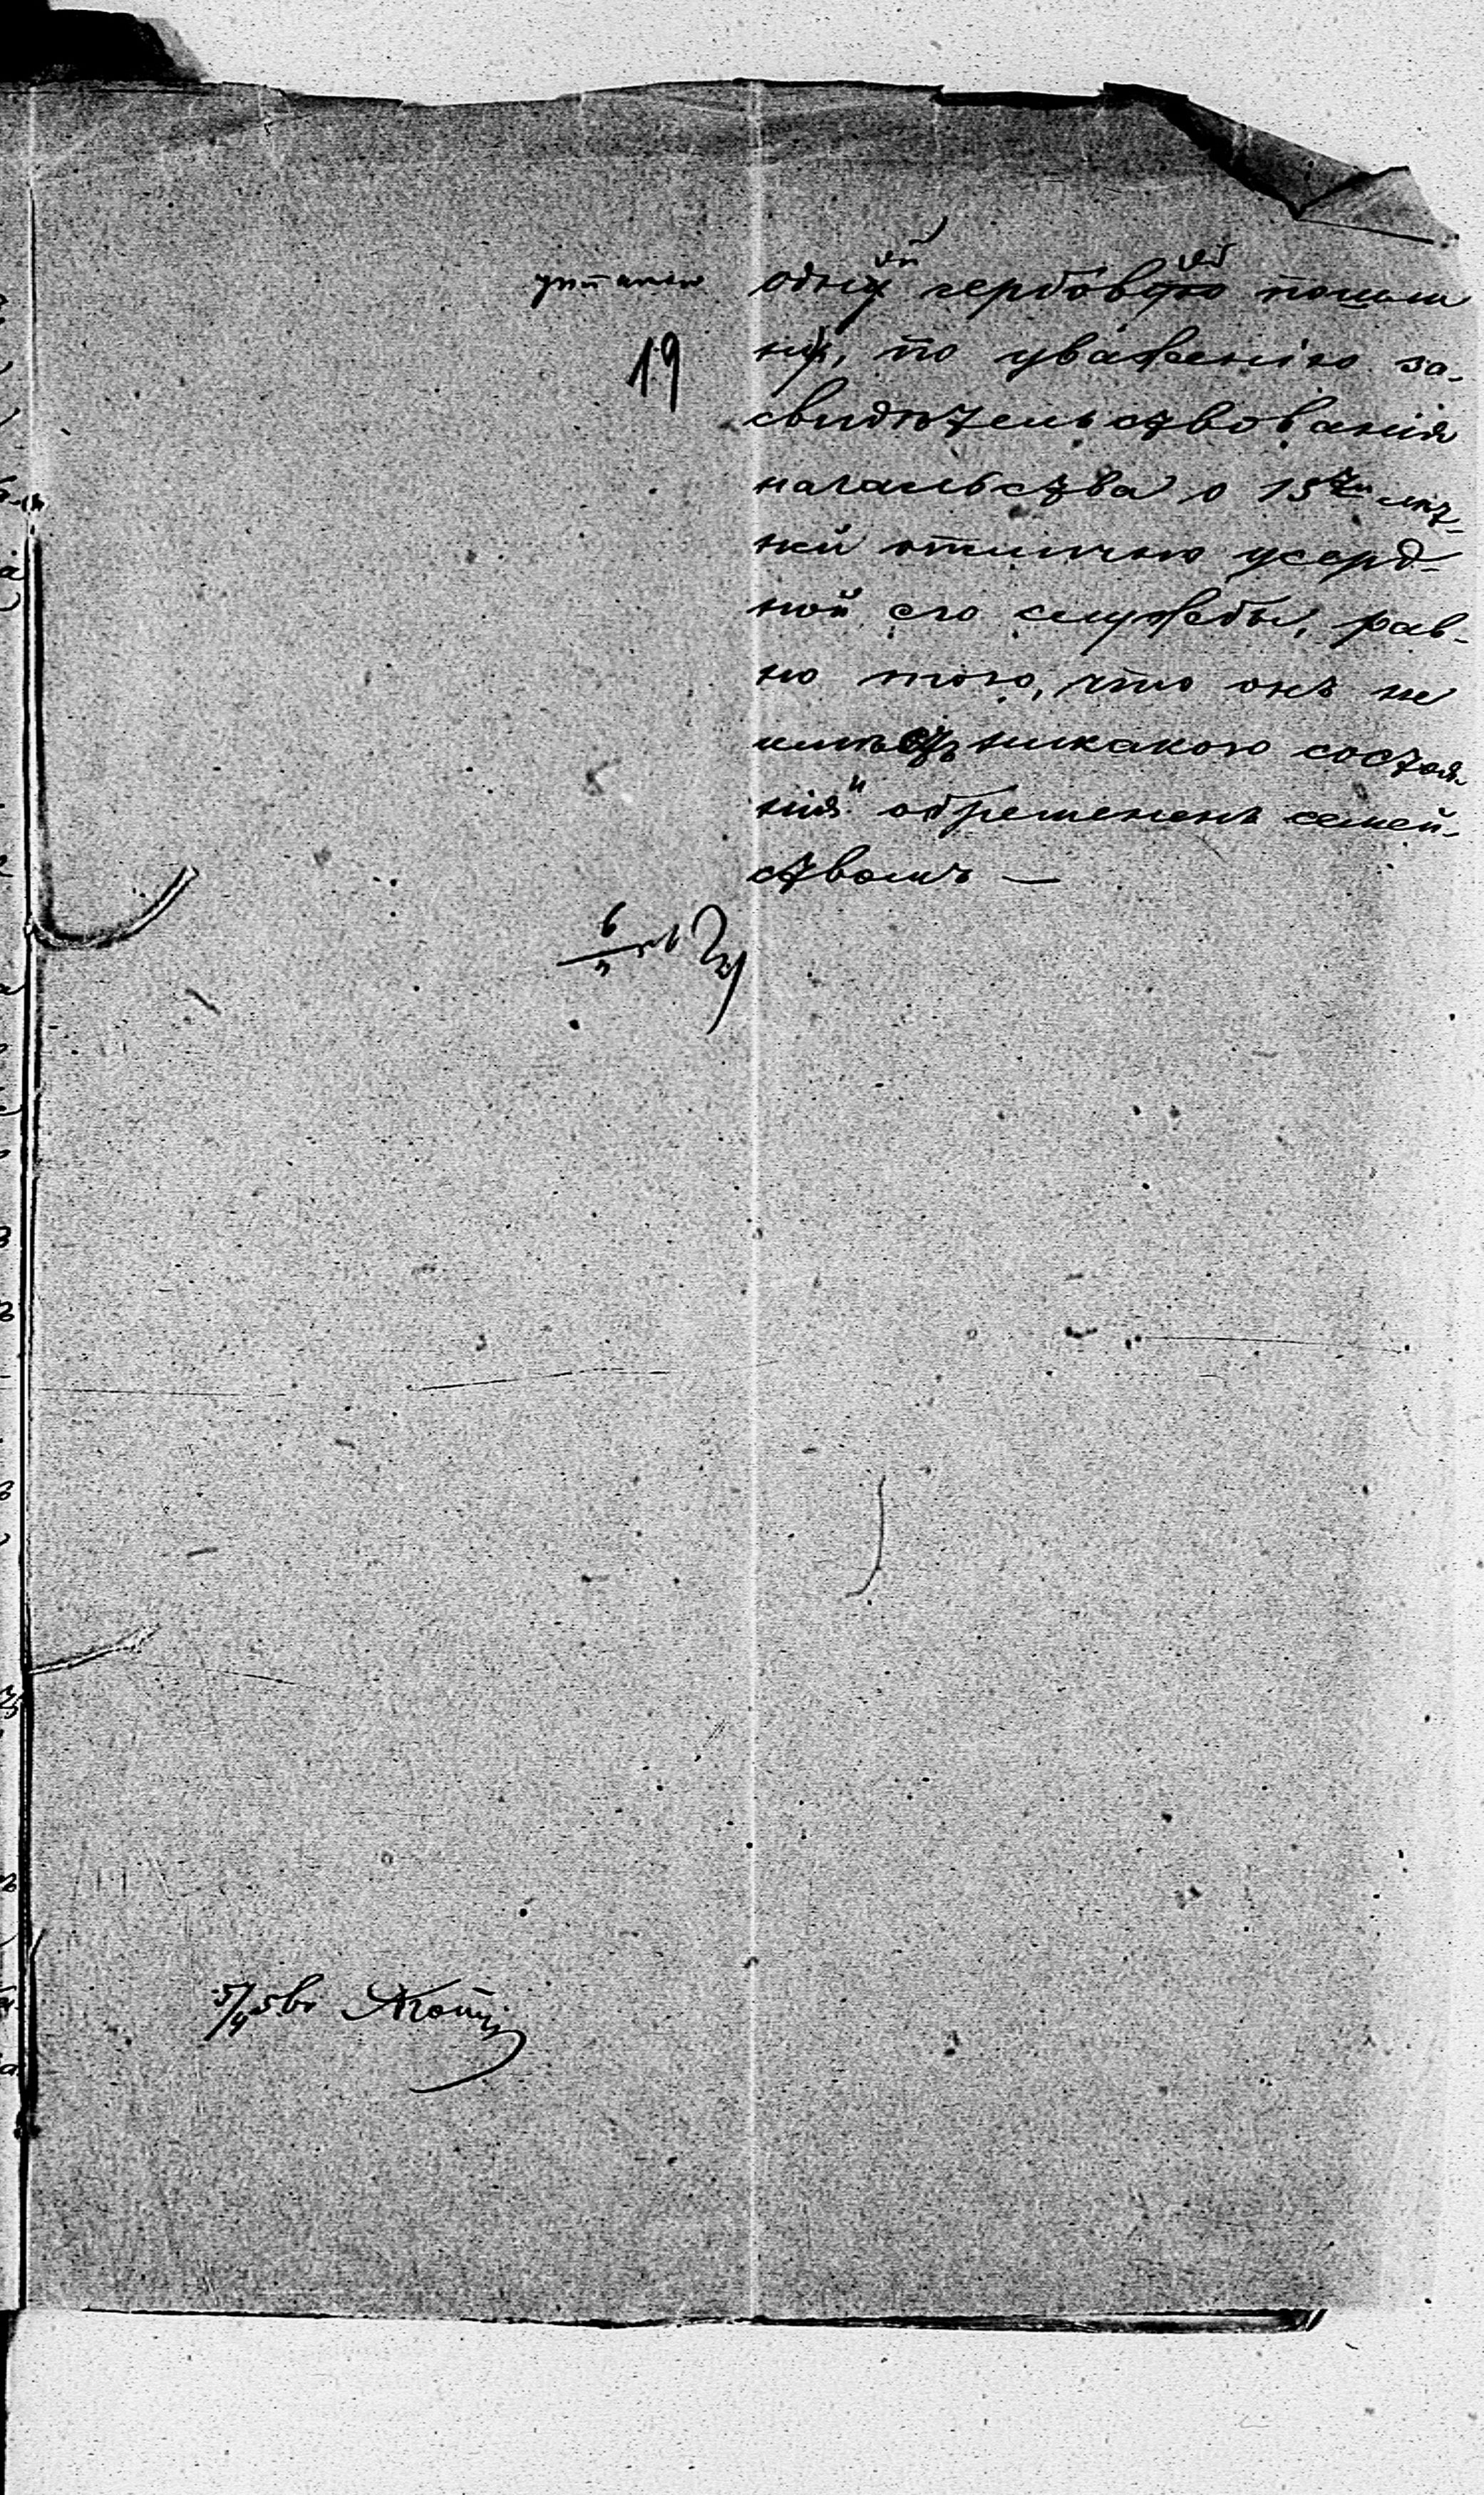 одной гербовой пошли
ны, по уваженію за-
свидѣтельствованія
начальства о 15ти лѣт-
ней отлично усерд-
ной его службы, рав-
но того, что онъ не
имѣетъ никакого состоя-
нія и обремененъ семей-
ствомъ —
19